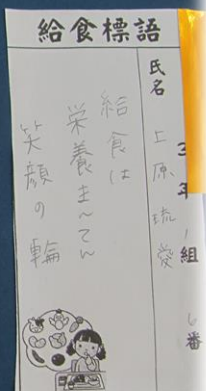 給食標語
3年1組6番
氏名 上原琉愛
給食は
栄養まんてん
笑顔の輪